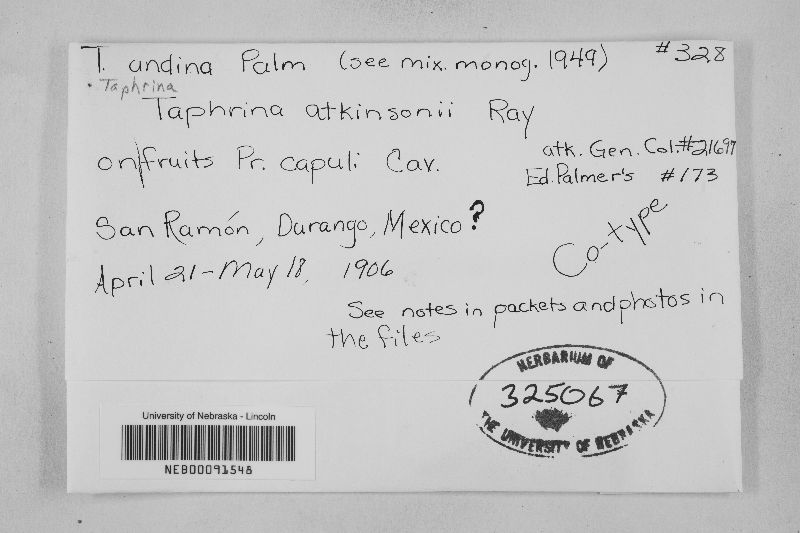 T. andina Palm (see mix. monog. 1949) #328
• Taphrina
Taphrina atkinsonii Ray
on fruits Pr. capuli Cav.
atk. Gen. Col. #21697
Ed. Palmer's #173
San Ramón, Durango, Mexico?
Co-type
April 21 - May 18, 1906
See notes in packets and photos in
the files
HERBARIUM OF
325067
THE UNIVERSITY OF NEBRASKA
University of Nebraska - Lincoln
NEB00091548